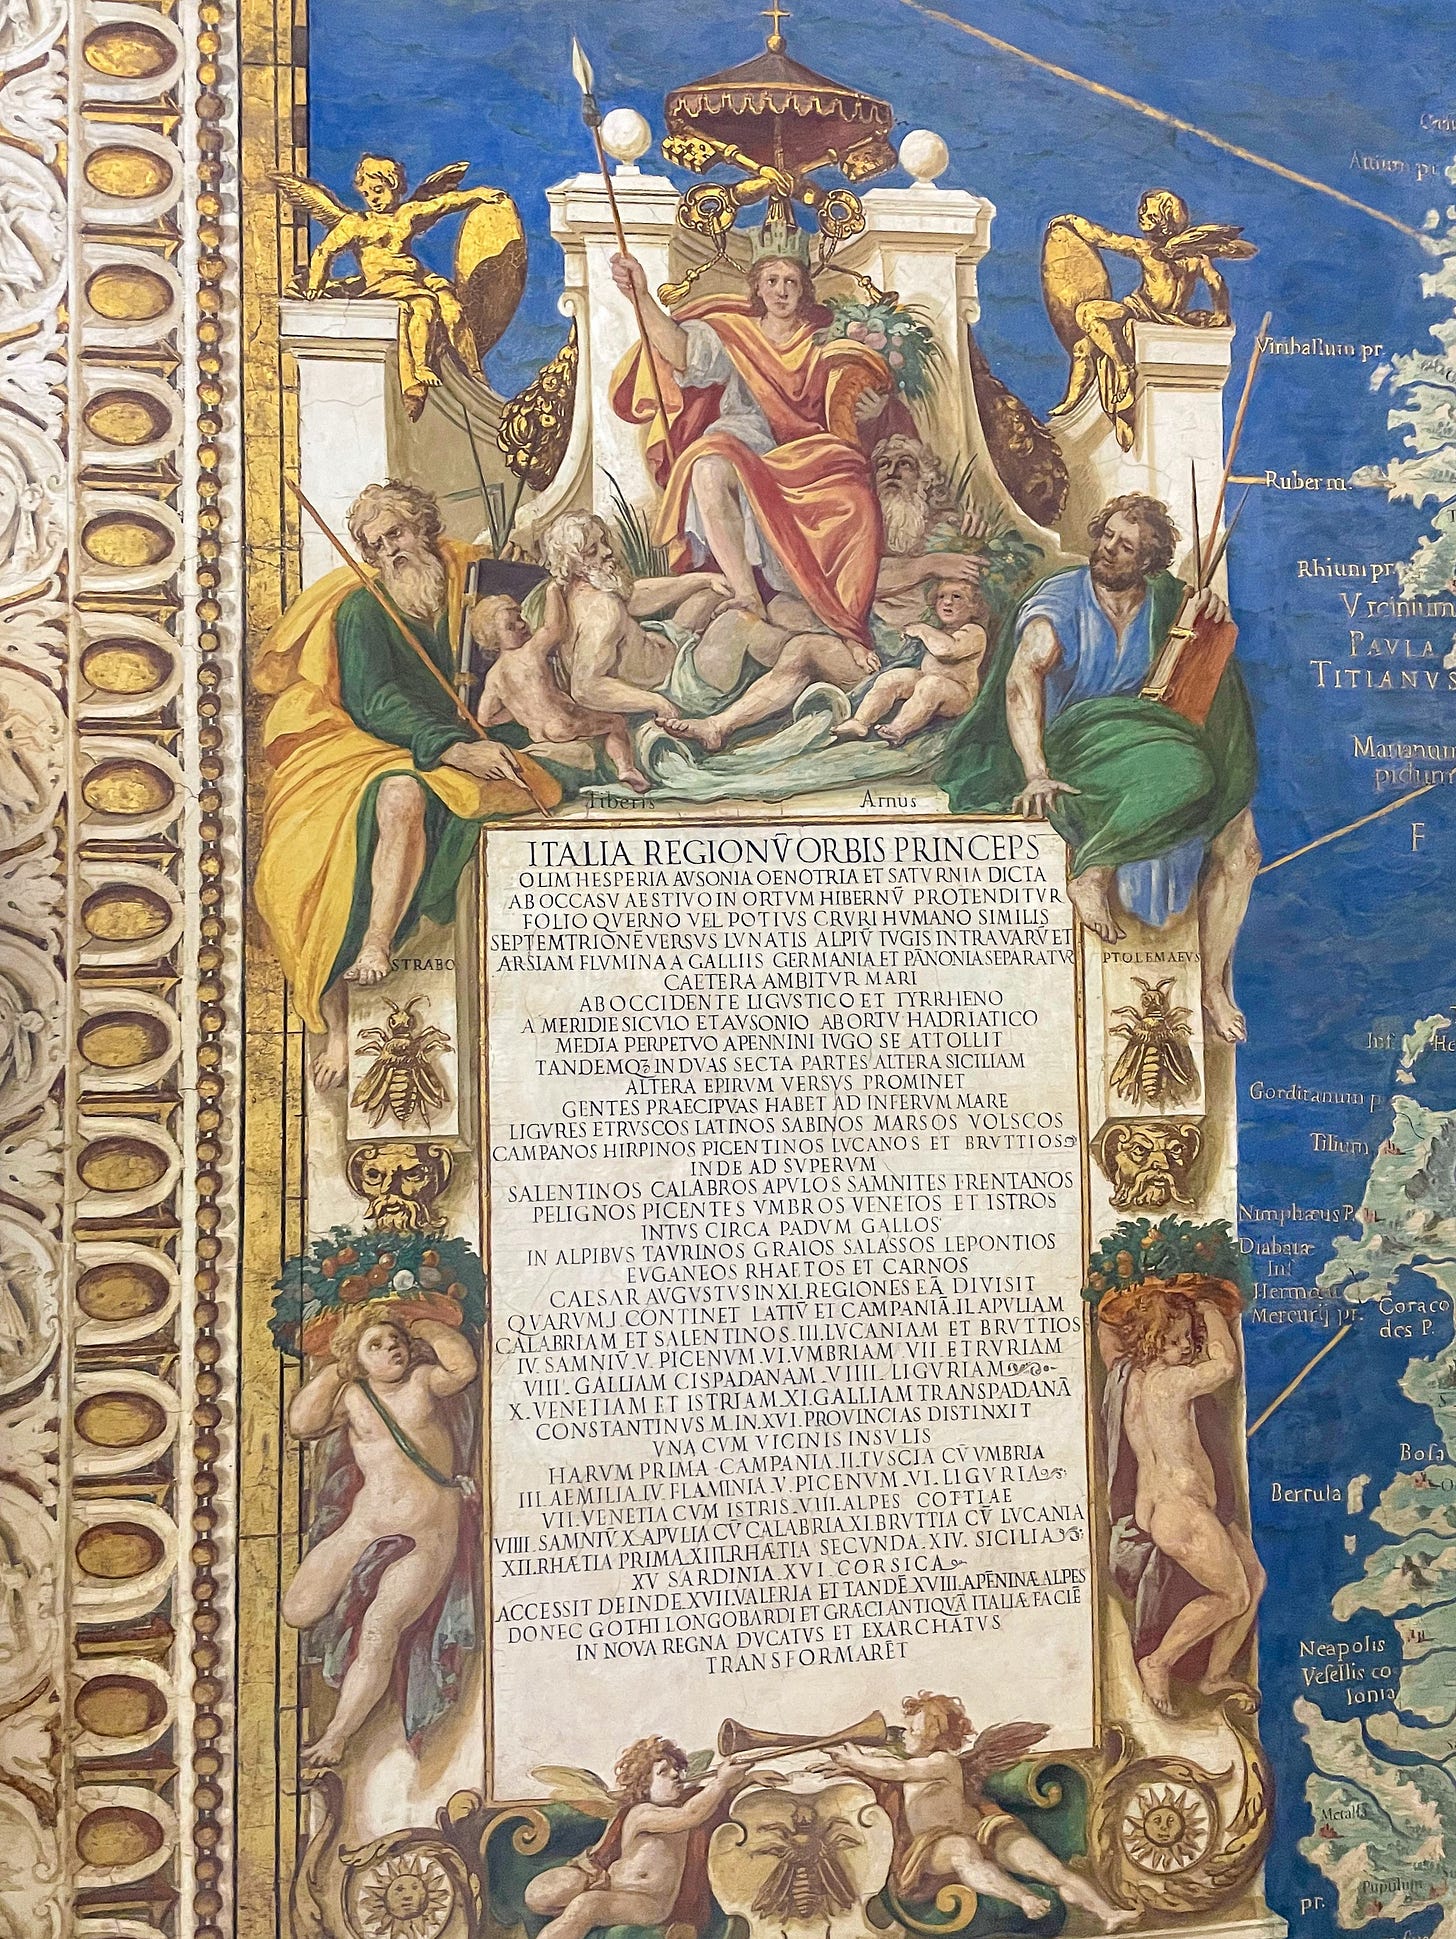 Attium pr
Viriballum pr.
Ruber m.
Rhium pr.
Vrcinium
PAVLA
TITIANVS
Marianum
pidum
F
Tiberis
Arnus
ITALIA REGIONV̄ ORBIS PRINCEPS
OLIM HESPERIA AVSONIA OENOTRIA ET SATVRNIA DICTA
AB OCCASV AESTIVO IN ORTVM HIBERNV̄ PROTENDITVR
FOLIO QVERNO VEL POTIVS CRVRI HVMANO SIMILIS
SEPTEMTRIONĒ VERSVS LVNATIS ALPIV̄ IVGIS INTRA VARV̄ ET
ARSIAM FLVMINA A GALLIIS GERMANIA ET PĀNONIA SEPARATVR
CAETERA AMBITVR MARI
AB OCCIDENTE LIGVSTICO ET TYRRHENO
A MERIDIE SICVLO ET AVSONIO AB ORTV HADRIATICO
MEDIA PERPETVO APENNINI IVGO SE ATTOLLIT
TANDEMQꝫ IN DVAS SECTA PARTES ALTERA SICILIAM
ALTERA EPIRVM VERSVS PROMINET
GENTES PRAECIPVAS HABET AD INFERVM MARE
LIGVRES ETRVSCOS LATINOS SABINOS MARSOS VOLSCOS
CAMPANOS HIRPINOS PICENTINOS LVCANOS ET BRVTTIOS
INDE AD SVPERVM
SALENTINOS CALABROS APVLOS SAMNITES FRENTANOS
PELIGNOS PICENTES VMBROS VENETOS ET ISTROS
INTVS CIRCA PADVM GALLOS
IN ALPIBVS TAVRINOS GRAIOS SALASSOS LEPONTIOS
EVGANEOS RHAETOS ET CARNOS
CAESAR AVGVSTVS IN XI. REGIONES EĀ DIVISIT
QVARVM.I. CONTINET LATIV̄ ET CAMPANIĀ.II.APVLIAM
CALABRIAM ET SALENTINOS.III.LVCANIAM ET BRVTTIOS
IV. SAMNIV̄.V. PICENVM.VI.VMBRIAM.VII.ETRVRIAM
VIII.GALLIAM CISPADANAM.VIIII.LIGVRIAM
X.VENETIAM ET ISTRIAM.XI.GALLIAM TRANSPADANĀ
CONSTANTINVS M. IN.XVI.PROVINCIAS DISTINXIT
VNA CVM VICINIS INSVLIS
HARVM PRIMA CAMPANIA.II.TVSCIA CV̄ VMBRIA
III.AEMILIA.IV.FLAMINIA.V.PICENVM.VI.LIGVRIA
VII.VENETIA CVM ISTRIS.VIII.ALPES COTTIAE
VIIII.SAMNIV̄.X.APVLIA CV̄ CALABRIA.XI.BRVTTIA CV̄ LVCANIA
XII.RHÆTIA PRIMA.XIII.RHÆTIA SECVNDA.XIV. SICILIA
XV SARDINIA.XVI.CORSICA
ACCESSIT DEINDE.XVII.VALERIA ET TANDĒ.XVIII.APĒNINÆ ALPES
DONEC GOTHI LONGOBARDI ET GRÆCI ANTIQVĀ ITALIÆ FACIĒ
IN NOVA REGNA DVCATVS ET EXARCHATVS
TRANSFORMARĒT
STRABO
PTOLEMAEVS
Inf. He
Gorditanum p
Tilium
Nimphæus P.
Diabatæ
Inf
Hermæa
Mercurij pr.
Coraco
des P.
Bosa
Berrula
Neapolis
Vesellis co
lonia
Metalla
Pupulum
pr.